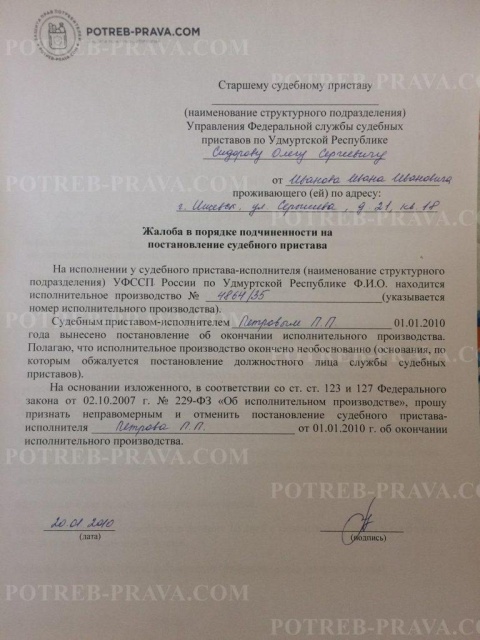 POTREB-PRAVA.COM
Старшему судебному приставу
(наименование структурного подразделения)
Управления Федеральной службы судебных
приставов по Удмуртской Республике
Сидорову Олегу Сергеевичу
от Иванова Ивана Ивановича
проживающего (ей) по адресу:
г. Ижевск, ул. Серышева, д 21, кв. 18
Жалоба в порядке подчиненности на
постановление судебного пристава
На исполнении у судебного пристава-исполнителя (наименование структурного
подразделения) УФССП России по Удмуртской Республике Ф.И.О. находится
исполнительное производство № 4864/35 (указывается
номер исполнительного производства).
Судебным приставом-исполнителем Петровым П П 01.01.2010
года вынесено постановление об окончании исполнительного производства.
Полагаю, что исполнительное производство окончено необоснованно (основания, по
которым обжалуется постановление должностного лица службы судебных
приставов).
На основании изложенного, в соответствии со ст. ст. 123 и 127 Федерального
закона от 02.10.2007 г. № 229-ФЗ «Об исполнительном производстве», прошу
признать неправомерным и отменить постановление судебного пристава-
исполнителя Петрова П.П. от 01.01.2010 г. об окончании
исполнительного производства.
20.01 2010
(дата) (подпись)
POTREB-PRAVA.COM
POTREB-PRAVA.COM
POTREB-PRAVA.COM
POTREB-PRAVA.COM
POTREB-PRAVA.COM
POTREB-PRAVA.COM
POTREB-PRAVA.COM
POTREB-PRAVA.COM
POTREB-PRAVA.COM
POTREB-PRAVA.COM